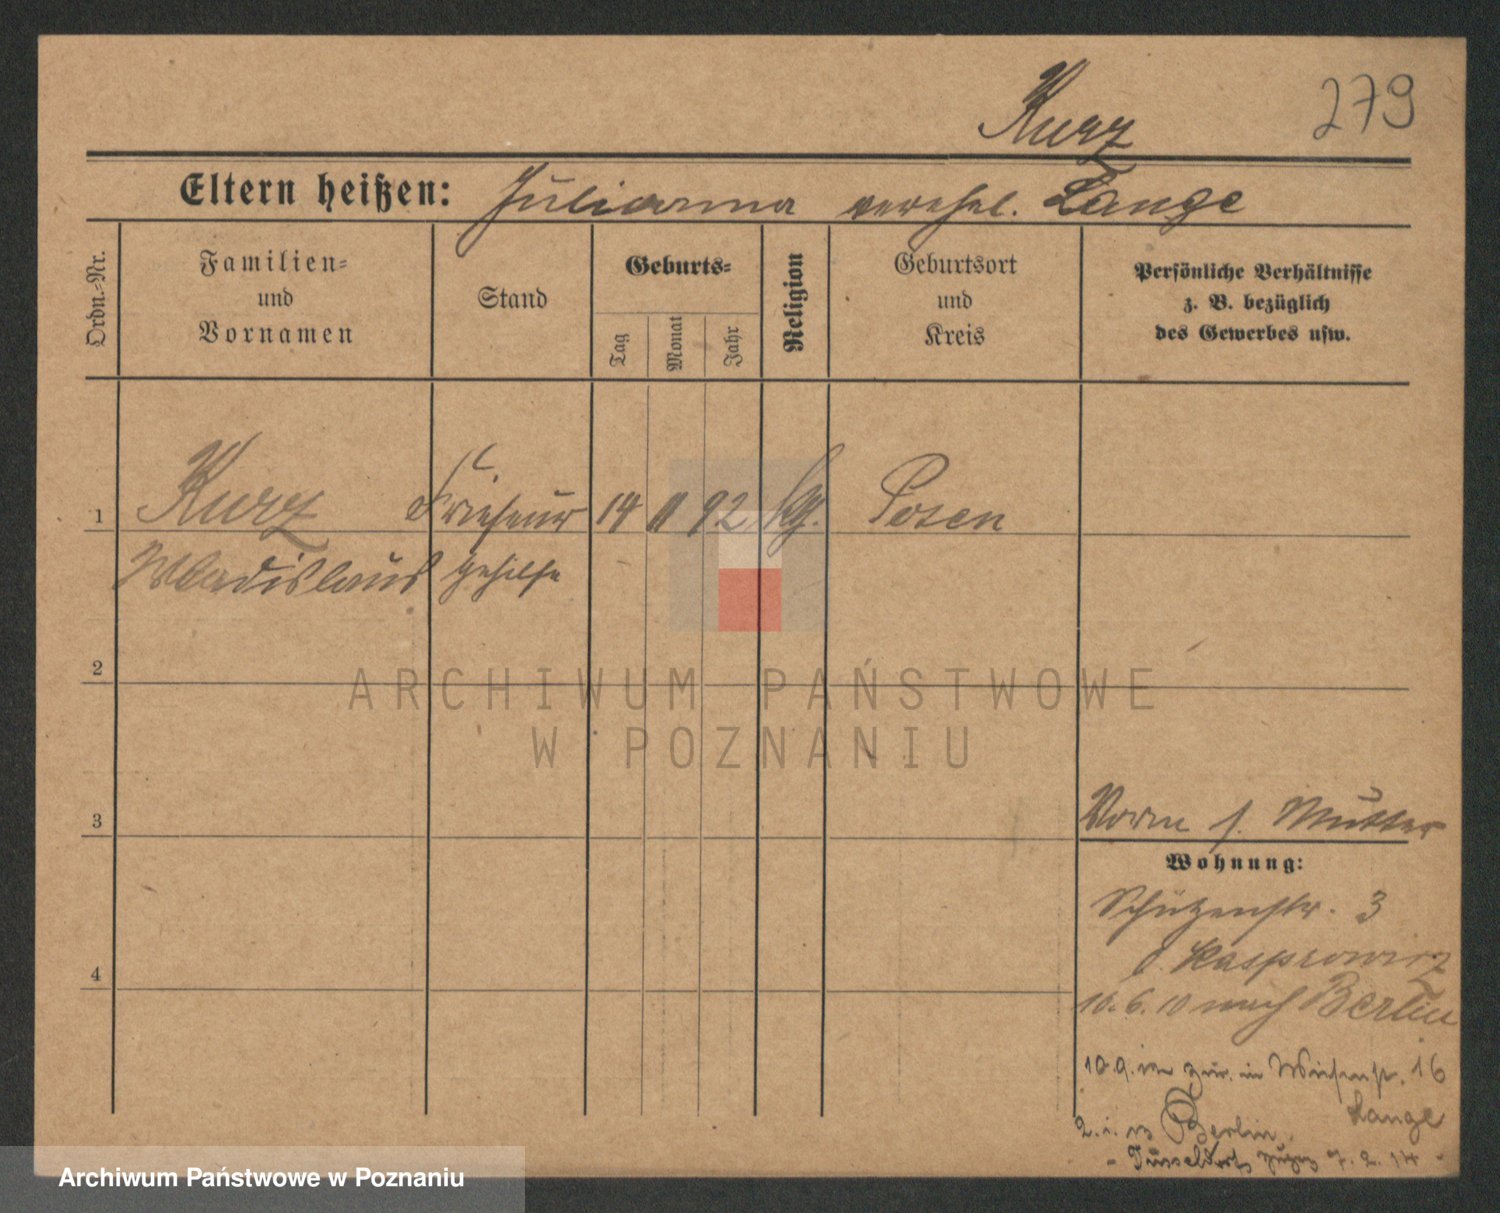 279
Kurz
Eltern heißen: Julianna verehel. Lange
Ordn.-Nr.
Familien-
und
Vornamen
Stand
Geburts-
Tag
Monat
Jahr
Religion
Geburtsort
und
Kreis
Persönliche Verhältnisse
z. B. bezüglich
des Gewerbes usw.
1 Kurz Friseur 14 11 92 Posen
Wladislaus Gehilfe
2
ARCHIWUM PAŃSTWOWE
W POZNANIU
3
Vorm. s. Mutter
Wohnung:
Schützenstr. 3
Kasprowicz
4
10.6.10 nach Berlin
10.9. zur. in Wiesenstr. 16
Lange
Berlin
Düsseldorf 7.2.14
Archiwum Państwowe w Poznaniu